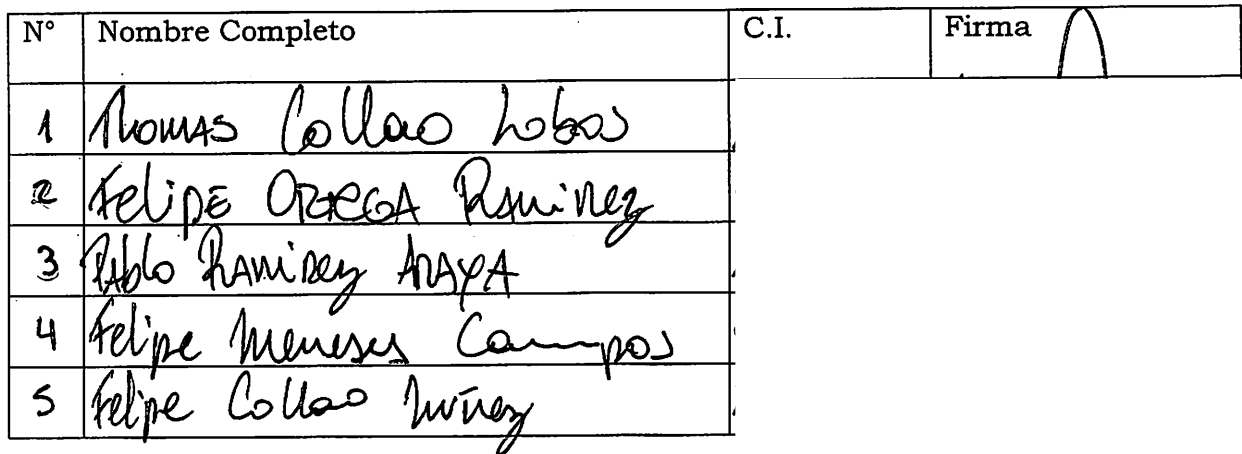 N° Nombre Completo C.I. Firma
1 Thomas Collao Lobos
2 Felipe ORTEGA Ramirez
3 Pablo Ramirez ARAYA
4 Felipe Meneses Campos
5 Felipe Collao Nuñez